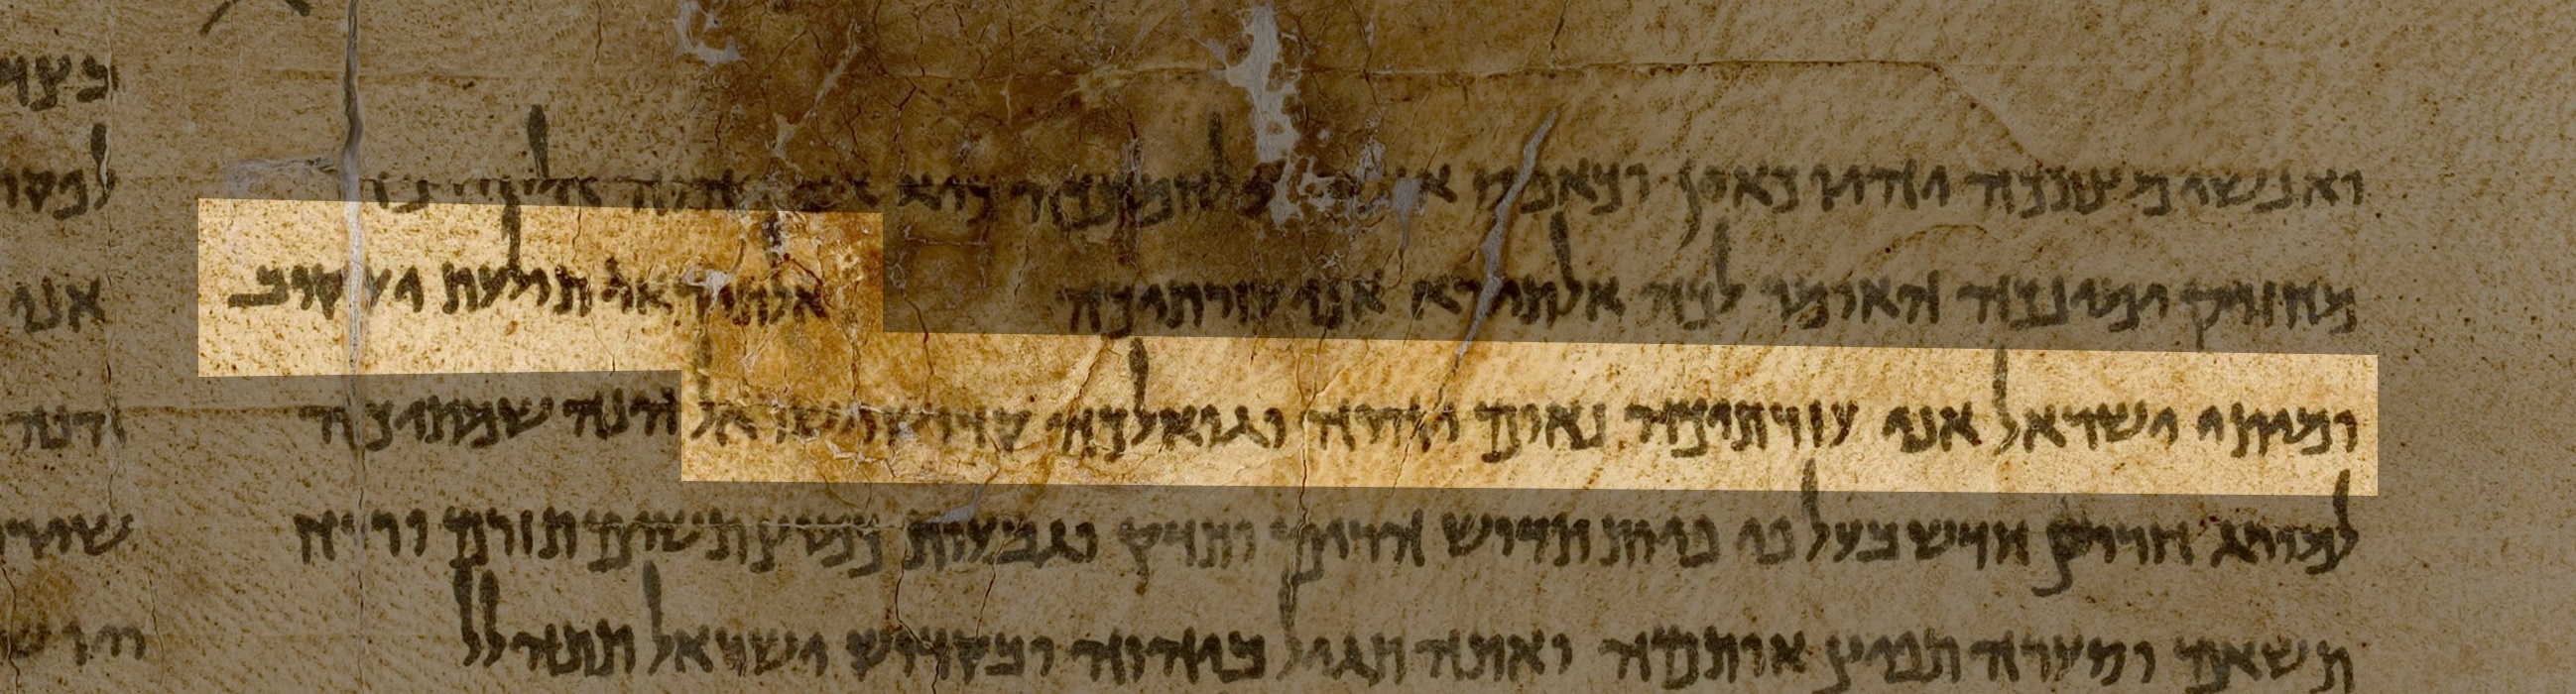 ואנשי מצותכה יהיו כאין וכאפס אנשי מלחמתכה כיא אני יהוה אלוהיכה
מחזיק ימינכה האומר לכה אל תירא אני עוזרתיכה אל תיראי תולעת יעקוב
ומיתי ישראל אני עוזרתיכה נאום יהוה וגואלכה קדוש ישראל הנה שמתיכה
למורג חרוץ חדש בעל פיפיות תדוש הרים ותדק וגבעות כמוץ תשים תזורם ורוח
תשאם וסערה תפיץ אותמה ואתה תגיל ביהוה ובקדוש ישראל תתהלל
אני